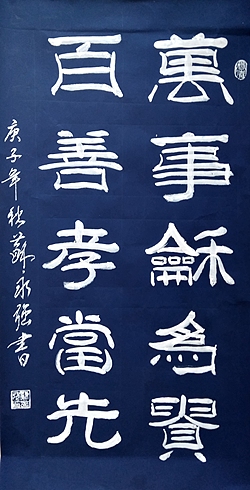 萬事龢為貴
百善孝當先
庚子年秋蘇永強書